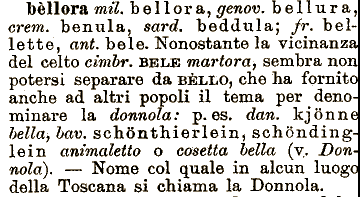 bèllora mil. bellora, genov. bellura,
crem. benula, sard. beddula; fr. bel-
lette, ant. bele. Nonostante la vicinanza
del celto cimbr. BELE martora, sembra non
potersi separare da BÈLLO, che ha fornito
anche ad altri popoli il tema per deno-
minare la donnola: p. es. dan. kjönne
bella, bav. schönthierlein, schönding-
lein animaletto o cosetta bella (v. Don-
nola). — Nome col quale in alcun luogo
della Toscana si chiama la Donnola.